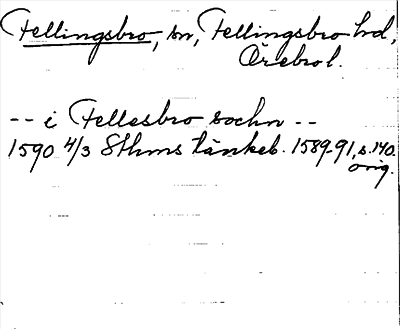 Fellingsbro, sn, Fellingsbro hd,
Örebro l.
-- i Fellesbro sochn --
1590 4/3 Sthms tänkeb. 1589-91, s. 140.
orig.